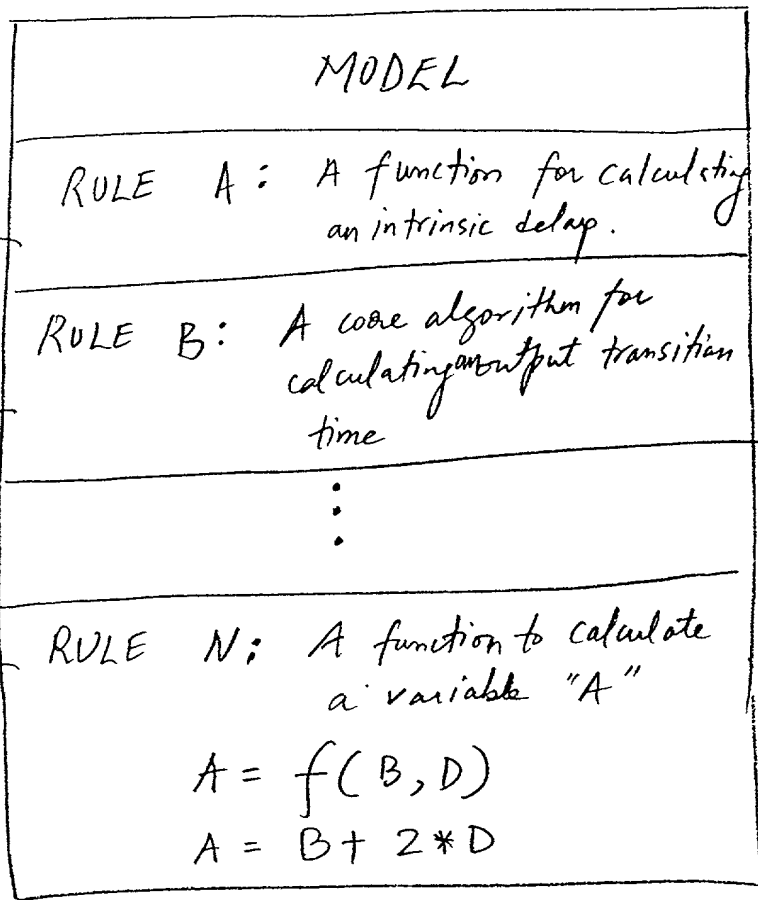 MODEL
RULE A: A function for calculating
an intrinsic delay.
RULE B: A core algorithm for
calculating an output transition
time
⋮
RULE N: A function to calculate
a variable "A"
A = f(B, D)
A = B + 2*D